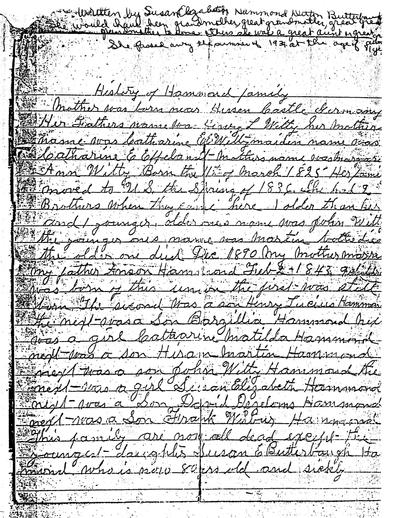 Written by Susan Elizabeth Hammond Butterbaugh
would have been grandmother great grandmother, great great
grandmother to some others she was a great aunt
She passed away the summer of 19 at the age of
History of Hammond family
Mother was born near Hessen Castle Germany
Her Fathers name was L Witty her Mothers
name was Catharine E Witty maiden name was
Catharine E Mothers name was
Ann Witty Born the 11 of March 1825 Her
moved to U.S. the Spring of 1836. She had 2
Brothers when they came here 1 older than her
and 1 younger, older one's name was John Witt
the younger one's name was Martin both
the older one died Dec 1890 My mother
my father Anson Hammond Feb 2 1843
was born of this union the first was still
born The second was a son Henry Lucius Hammon
the next was a Son Barzillia Hammond
was a girl Catharine Matilda Hammond
next was a son Hiram Martin Hammond
next was a son John Witty Hammond the
next was a girl Susan Elizabeth Hammond
next was a Son David Hammond
next was a Son Frank Wilbur Hammond
This family are now all dead except the
youngest daughter Susan E Butterbaugh Ha
mond who is now 80 years old and sickly